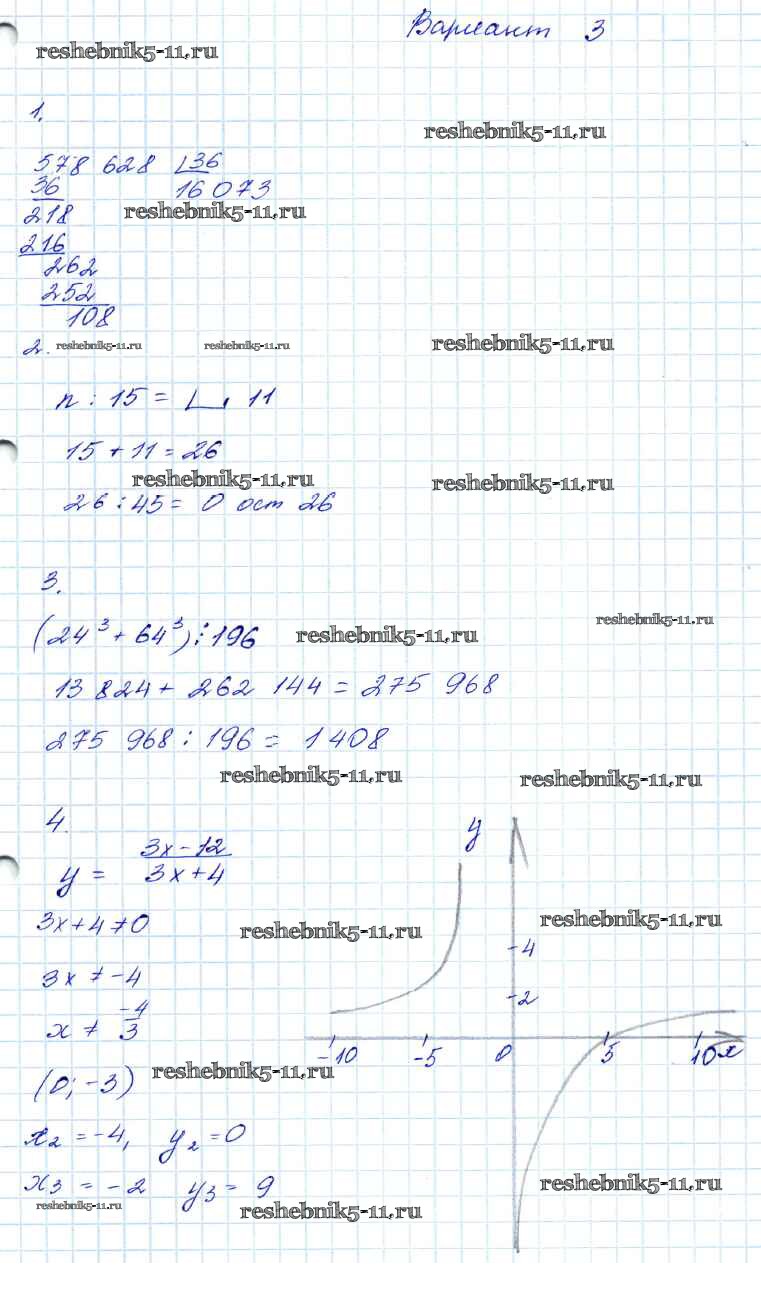 Вариант 3
reshebnik5-11.ru
1.
reshebnik5-11.ru
578 628 36
36 16 073
218 reshebnik5-11.ru
216
262
252
108
2. reshebnik5-11.ru reshebnik5-11.ru reshebnik5-11.ru
n : 15 = 11
15 + 11 = 26
reshebnik5-11.ru reshebnik5-11.ru
26 : 45 = 0 ост 26
3.
(24³ + 64³) ⋮ 196 reshebnik5-11.ru reshebnik5-11.ru
13 824 + 262 144 = 275 968
275 968 : 196 = 1408
reshebnik5-11.ru reshebnik5-11.ru
4.
y = 3x - 12 / 3x + 4
3x + 4 ≠ 0 reshebnik5-11.ru
3x ≠ -4
x ≠ -4/3
(0; -3) reshebnik5-11.ru
x₂ = -4, y₂ = 0
x₃ = -2 y₃ = 9
reshebnik5-11.ru reshebnik5-11.ru
y
reshebnik5-11.ru
-4
-2
-10 -5 0 5 10 x
reshebnik5-11.ru